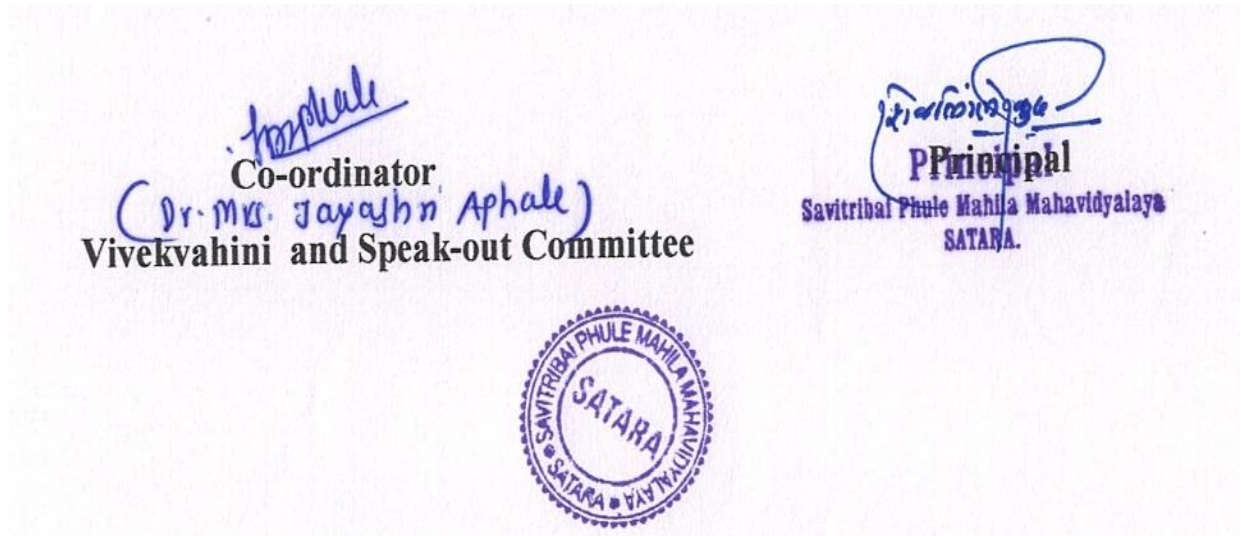 Co-ordinator
(Dr. Mrs. Jayashri Aphale)
Vivekvahini and Speak-out Committee
Principal
Principal
Savitribai Phule Mahila Mahavidyalaya
SATARA.
SAVITRIBAI PHULE MAHILA MAHAVIDYALAYA
SATARA
SATARA